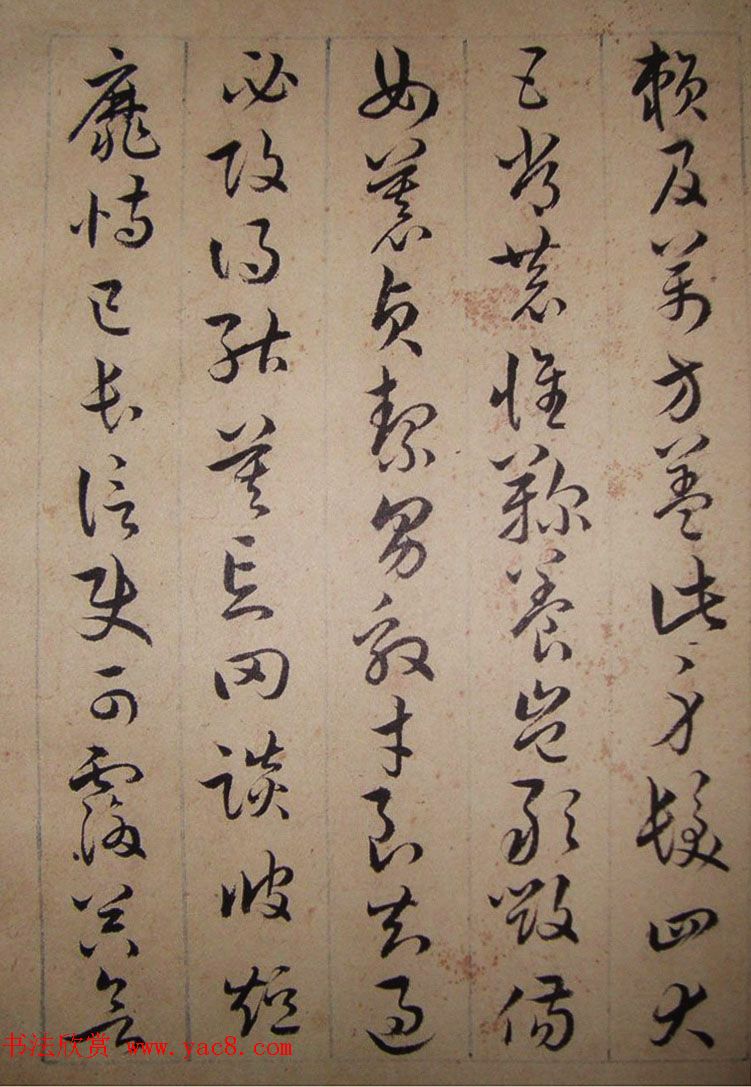 賴及萬方蓋此身髮四大
五常恭惟鞠養豈敢毀傷
女慕貞絜男效才良知過
必改得能莫忘罔談彼短
靡恃己長信使可覆器欲
书法欣赏 www.yac8.com